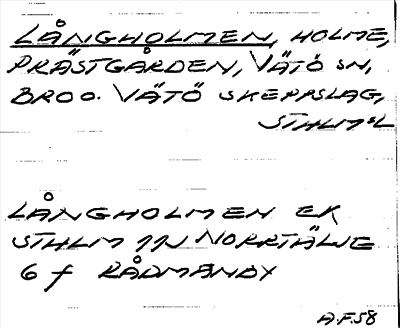 LÅNGHOLMEN, HOLME,
PRÄSTGÅRDEN, VÄTÖ SN,
BRO O. VÄTÖ SKEPPSLAG,
STHLMS L
LÅNGHOLMEN EK
STHLM 11N NORRTÄLJE
6 f RÅDMANBY
A.F. 58